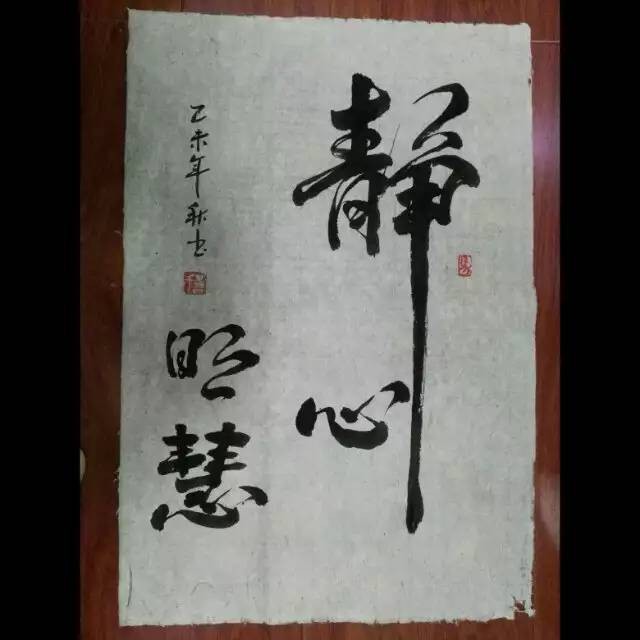 静心
明慧
乙未年秋书